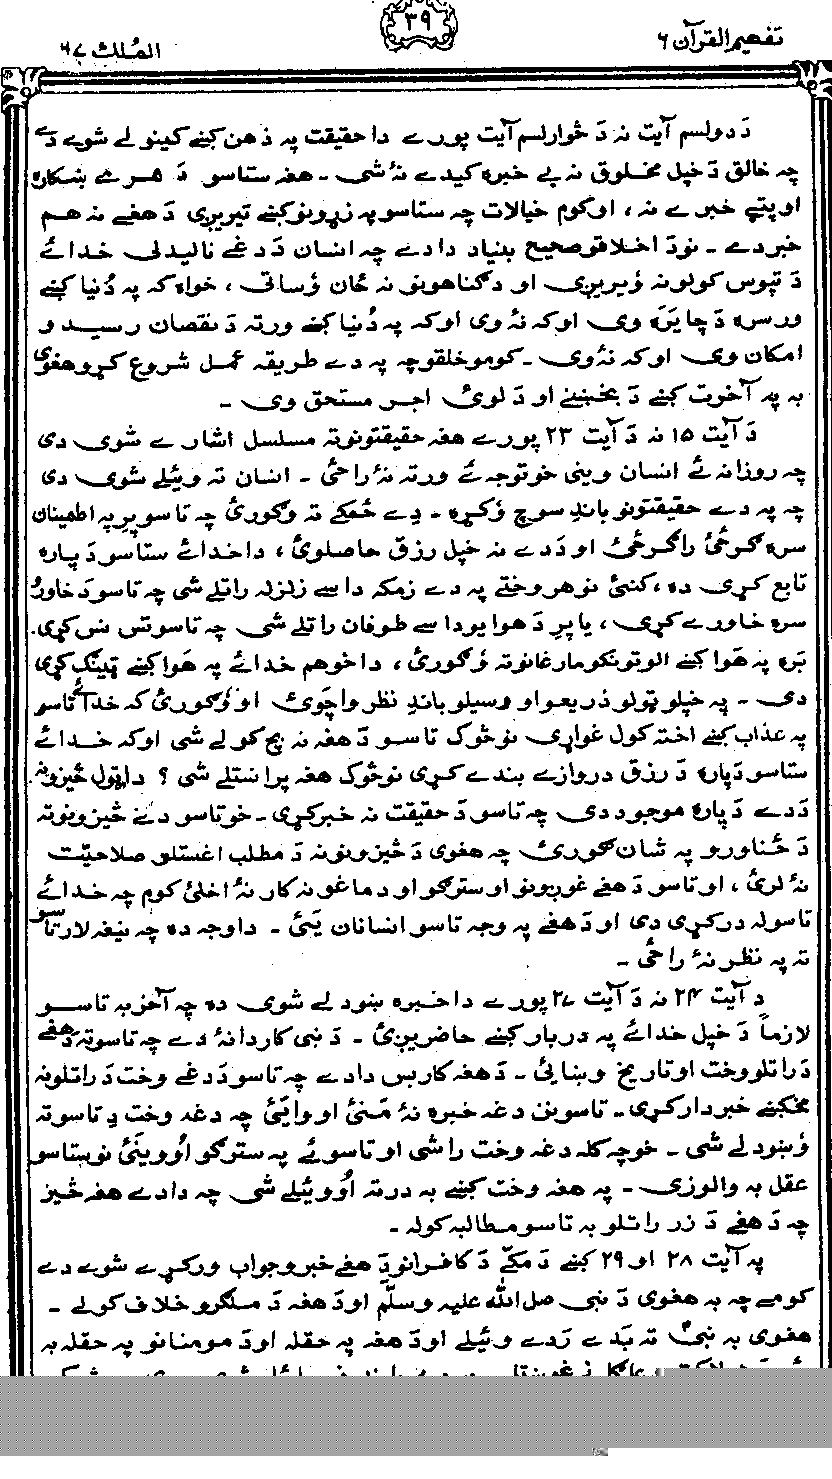 تفهيم القرآن ۶
۳۹
الملك ۶۷
دَ دولسم آيت نه دَ څوارلسم آيت پورے دا حقيقت په ذهن كښے كينولے شوے دے
چه خالق دَ خپل مخلوق نه بے خبره كيدے نهٔ شى ـ هغه ستاسو دَ هرے ښكاره
او پټے خبرے نه ، او كوم خيالات چه ستاسو په زړونو كښے تيريږى دَ هغے نه هم
خبر دے ـ نو دَ اخلاقو صحيح بنياد دا دے چه انسان دَ دغے ناليدلى خدائے
دَ تپوس كولو نه وٗيريږى او دَ گناهونو نه ځان وٗساتى ، خواه كه په دُنيا كښے
ورسره دَ چا يَره وى او كه نهٔ وى او كه په دُنيا كښے ورته دَ نقصان رسيدو
امكان وى او كه نهٔ وى ـ كومو خلقو چه په دے طريقه عمل شروع كړو هغوى
به په آخرت كښے دَ بخښنے او دَ لوئ اجر مستحق وى ـ
دَ آيت ۱۵ نه دَ آيت ۲۳ پورے هغه حقيقتونو ته مسلسل اشارے شوى دى
چه روزانه ئے انسان وينى خو توجه ئے ورته نهٔ راځى ـ انسان ته وئيلے شوى دى
چه په دے حقيقتونو باندِ سوچ وٗكړه ـ دِے ځمكے ته وګورئ چه تاسو پرِ په اطمينان
سره ګرځئ راګرځئ او دَ دے نه خپل رزق حاصلوئ ، دا خدائے ستاسو دَ پاره
تابع كړى ده ، كنئ نو هر وختے په دے زمكه داسے زلزله راتلے شى چه تاسو دَ خاورو
سره خاورے كړى ، يا پرِ دَ هوا يو داسے طوفان راتلے شى چه تاسو تس نس كړى.
بَره په هَوا كښے الوتونكو مارغانو ته وٗګورئ ، دا خو هم خدائے په هَوا كښے ټينګ كړى
دى ـ په خپلو ټولو ذريعو او وسيلو باندِ نظر واچوئ او وٗګورئ كه خدائے تاسو
په عذاب كښے اخته كول غواړى نو څوك تاسو دَ هغه نه بچ كولے شى او كه خدائے
ستاسو دَ پاره دَ رزق دروازے بندے كړى نو څوك هغه پرانستلے شى ؟ دا ټول څيزونه
دَ دے دَ پاره موجود دى چه تاسو دَ حقيقت نه خبر كړى ـ خو تاسو دغے څيزونو ته
دَ ځناورو په شان ګورئ چه هغوى دَ څيزونو نه دَ مطلب اغستلو صلاحيت
نهٔ لرى ، او تاسو دَ هغے غوږونو او سترګو او دماغو نه كار نهٔ اخلئ كوم چه خدائے
تاسو له دركړى دى او دَ هغے په وجه تاسو انسانان يئ ـ دا وجه ده چه نيغه لار تاسو
ته په نظر نهٔ راځى ـ
دِ آيت ۲۴ نه دَ آيت ۲۷ پورے دا خبره ښودلے شوى ده چه آخر به تاسو
لازماً دَ خپل خدائے په دربار كښے حاضريږئ ـ دَ نبى كار دا نهٔ دے چه تاسو ته دَ هغے
دَ راتلو وخت او تاريخ وښائى ـ دَ هغه كار بس دا دے چه تاسو دَ دغے وخت دَ راتلو نه
مخكښے خبردار كړى ـ تاسو نن دغه خبره نهٔ مَنئ او وايئ چه دغه وخت دِ تاسو ته
وٗښودلے شى ـ خو چه كله دغه وخت راشى او تاسو ئے په سترګو اُووينئ نو ستاسو
عقل به والوزى ـ په هغه وخت كښے به درته اُووئيلے شى چه دا دے هغه څيز
چه دَ هغے دَ زر راتلو به تاسو مطالبه كوله ـ
په آيت ۲۸ او ۲۹ كښے دَ مكّے دَ كافرانو دَ هغے خبرو جواب وركړے شوے دے
كومے چه به هغوى دَ نبى صل الله عليه وسلّم او دَ هغه دَ ملګرو خلاف كولے ـ
هغوى به نبىؐ ته بَد ے رَدے وئيلے او دَ هغه په حقله او دَ مومنانو په حقله به